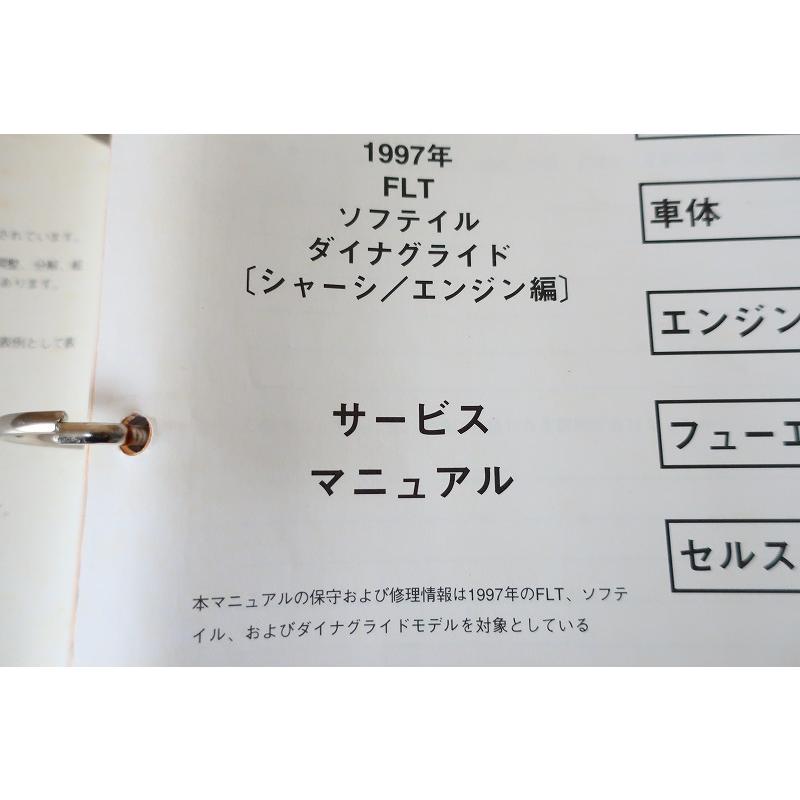 1997年
FLT
ソフテイル
ダイナグライド
〔シャーシ/エンジン編〕
サービス
マニュアル
本マニュアルの保守および修理情報は1997年のFLT、ソフテ
イル、およびダイナグライドモデルを対象としている
車体
エンジン
フューエ
セルス
されています。
調整、分解、組
あります。
表例として表